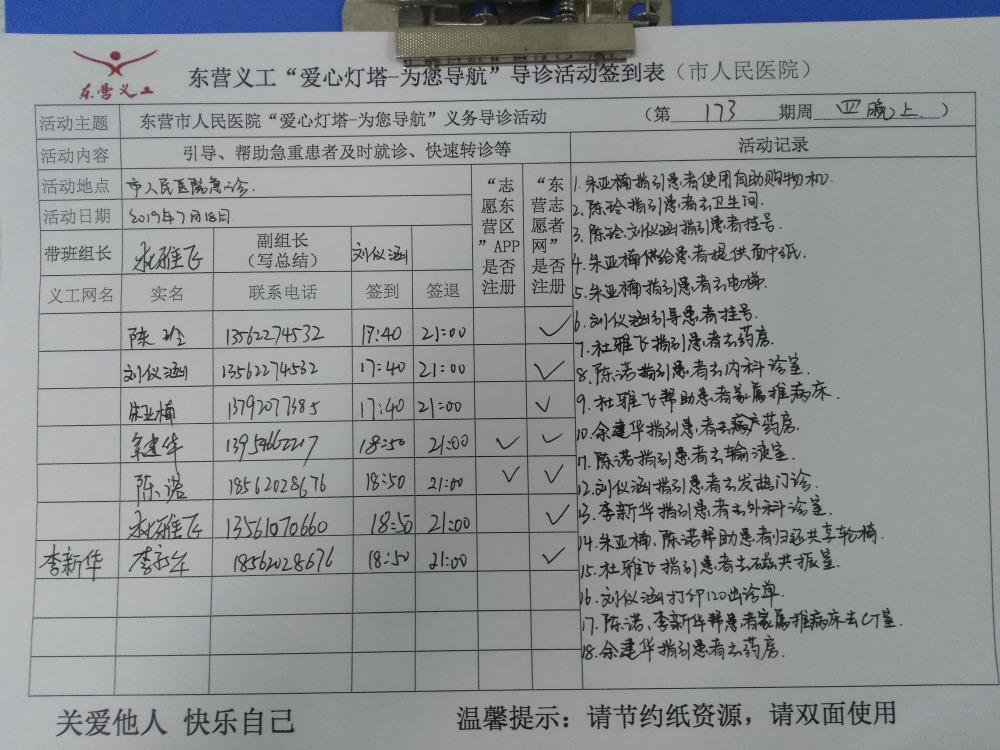 东营义工
东营义工“爱心灯塔-为您导航”导诊活动签到表（市人民医院）
活动主题 东营市人民医院“爱心灯塔-为您导航”义务导诊活动 （第 173 期周 四晚上 ）
活动内容 引导、帮助急重患者及时就诊、快速转诊等
活动地点 市人民医院急诊.
活动日期 2019年7月18日.
带班组长 杜雅飞 副组长（写总结） 刘仪涵
“志愿东营区”APP是否注册
“东营志愿者网”是否注册
义工网名 实名 联系电话 签到 签退
陈玲 13562274532 17:40 21:00 ✓
刘仪涵 13562274532 17:40 21:00 ✓
朱亚楠 13792077385 17:40 21:00 ✓
余建华 13954662217 18:50 21:00 ✓ ✓
陈诺 18562028676 18:50 21:00 ✓ ✓
杜雅飞 13561070660 18:50 21:00 ✓
李新华 李新华 18562028676 18:50 21:00 ✓
活动记录
1.朱亚楠指引患者使用自助购物机.
2.陈玲指引患者去卫生间.
3.陈玲.刘仪涵指引患者挂号.
4.朱亚楠供给患者提供面巾纸.
5.朱亚楠指引患者去电梯.
6.刘仪涵引导患者挂号.
7.杜雅飞指引患者去药房.
8.陈诺指引患者去内科诊室.
9.杜雅飞帮助患者家属推病床.
10.余建华指引患者去药房.
11.陈诺指引患者去输液室.
12.刘仪涵指引患者去发热门诊.
13.李新华指引患者去外科诊室.
14.朱亚楠、陈诺帮助患者归还共享轮椅.
15.杜雅飞指引患者去磁共振室.
16.刘仪涵打印120出诊单.
17.陈诺、李新华帮患者家属推病床去CT室.
18.余建华指引患者去药房.
关爱他人 快乐自己
温馨提示：请节约纸资源，请双面使用